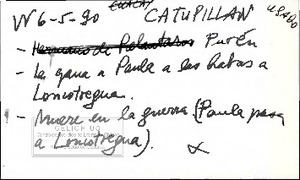 VV 6-5-90 CATUPILLAN USADO
- Hermano de Pelantaro Purén
- Le gana a Paula a las habas a
Loncotregua.
- Muere en la guerra (Paula pasa
a Loncotregua).
CELICH UC